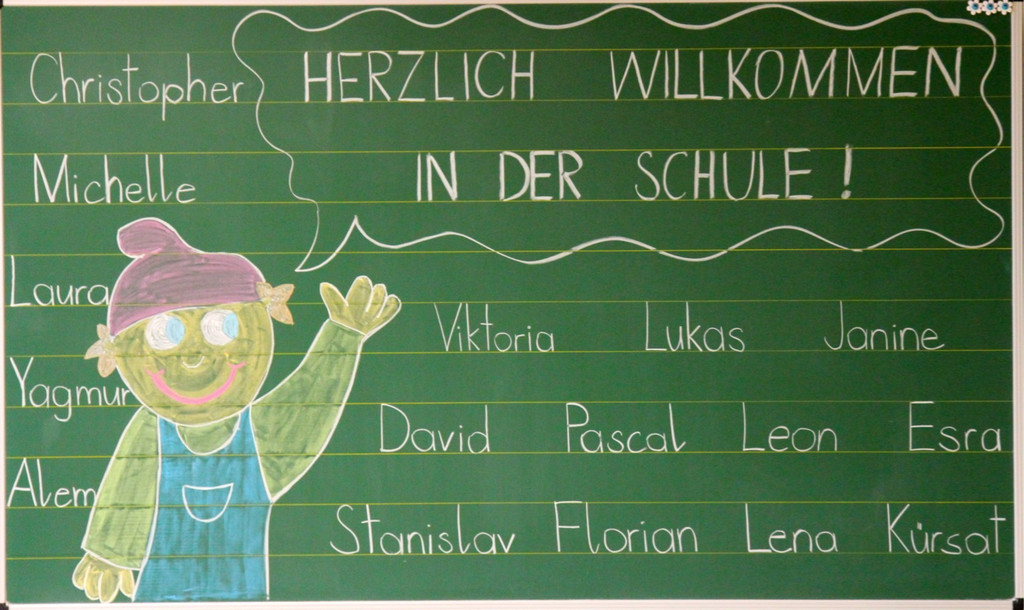 Christopher
HERZLICH WILLKOMMEN
Michelle
IN DER SCHULE!
Laura
Viktoria Lukas Janine
Yagmur
David Pascal Leon Esra
Alem
Stanislav Florian Lena Kürsat